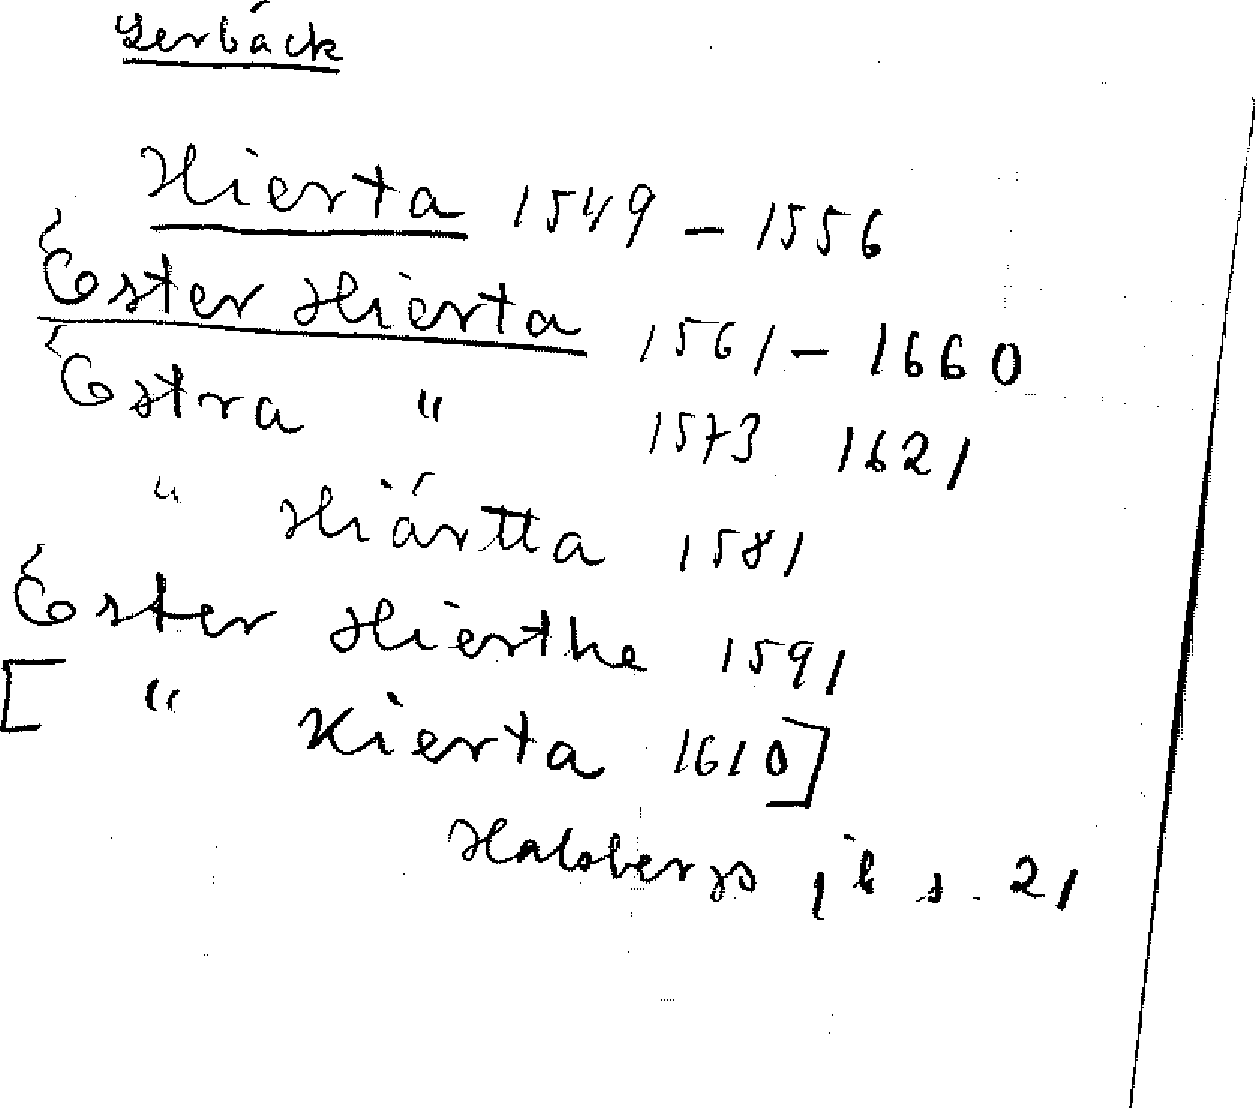 Lerbäck
Hierta 1549 - 1556
Öster Hierta 1561 - 1660
Östra " 1573 1621
" Hiärtta 1581
Öster Hierthe 1591
[ " Kierta 1610]
Halsbergs jb s. 21